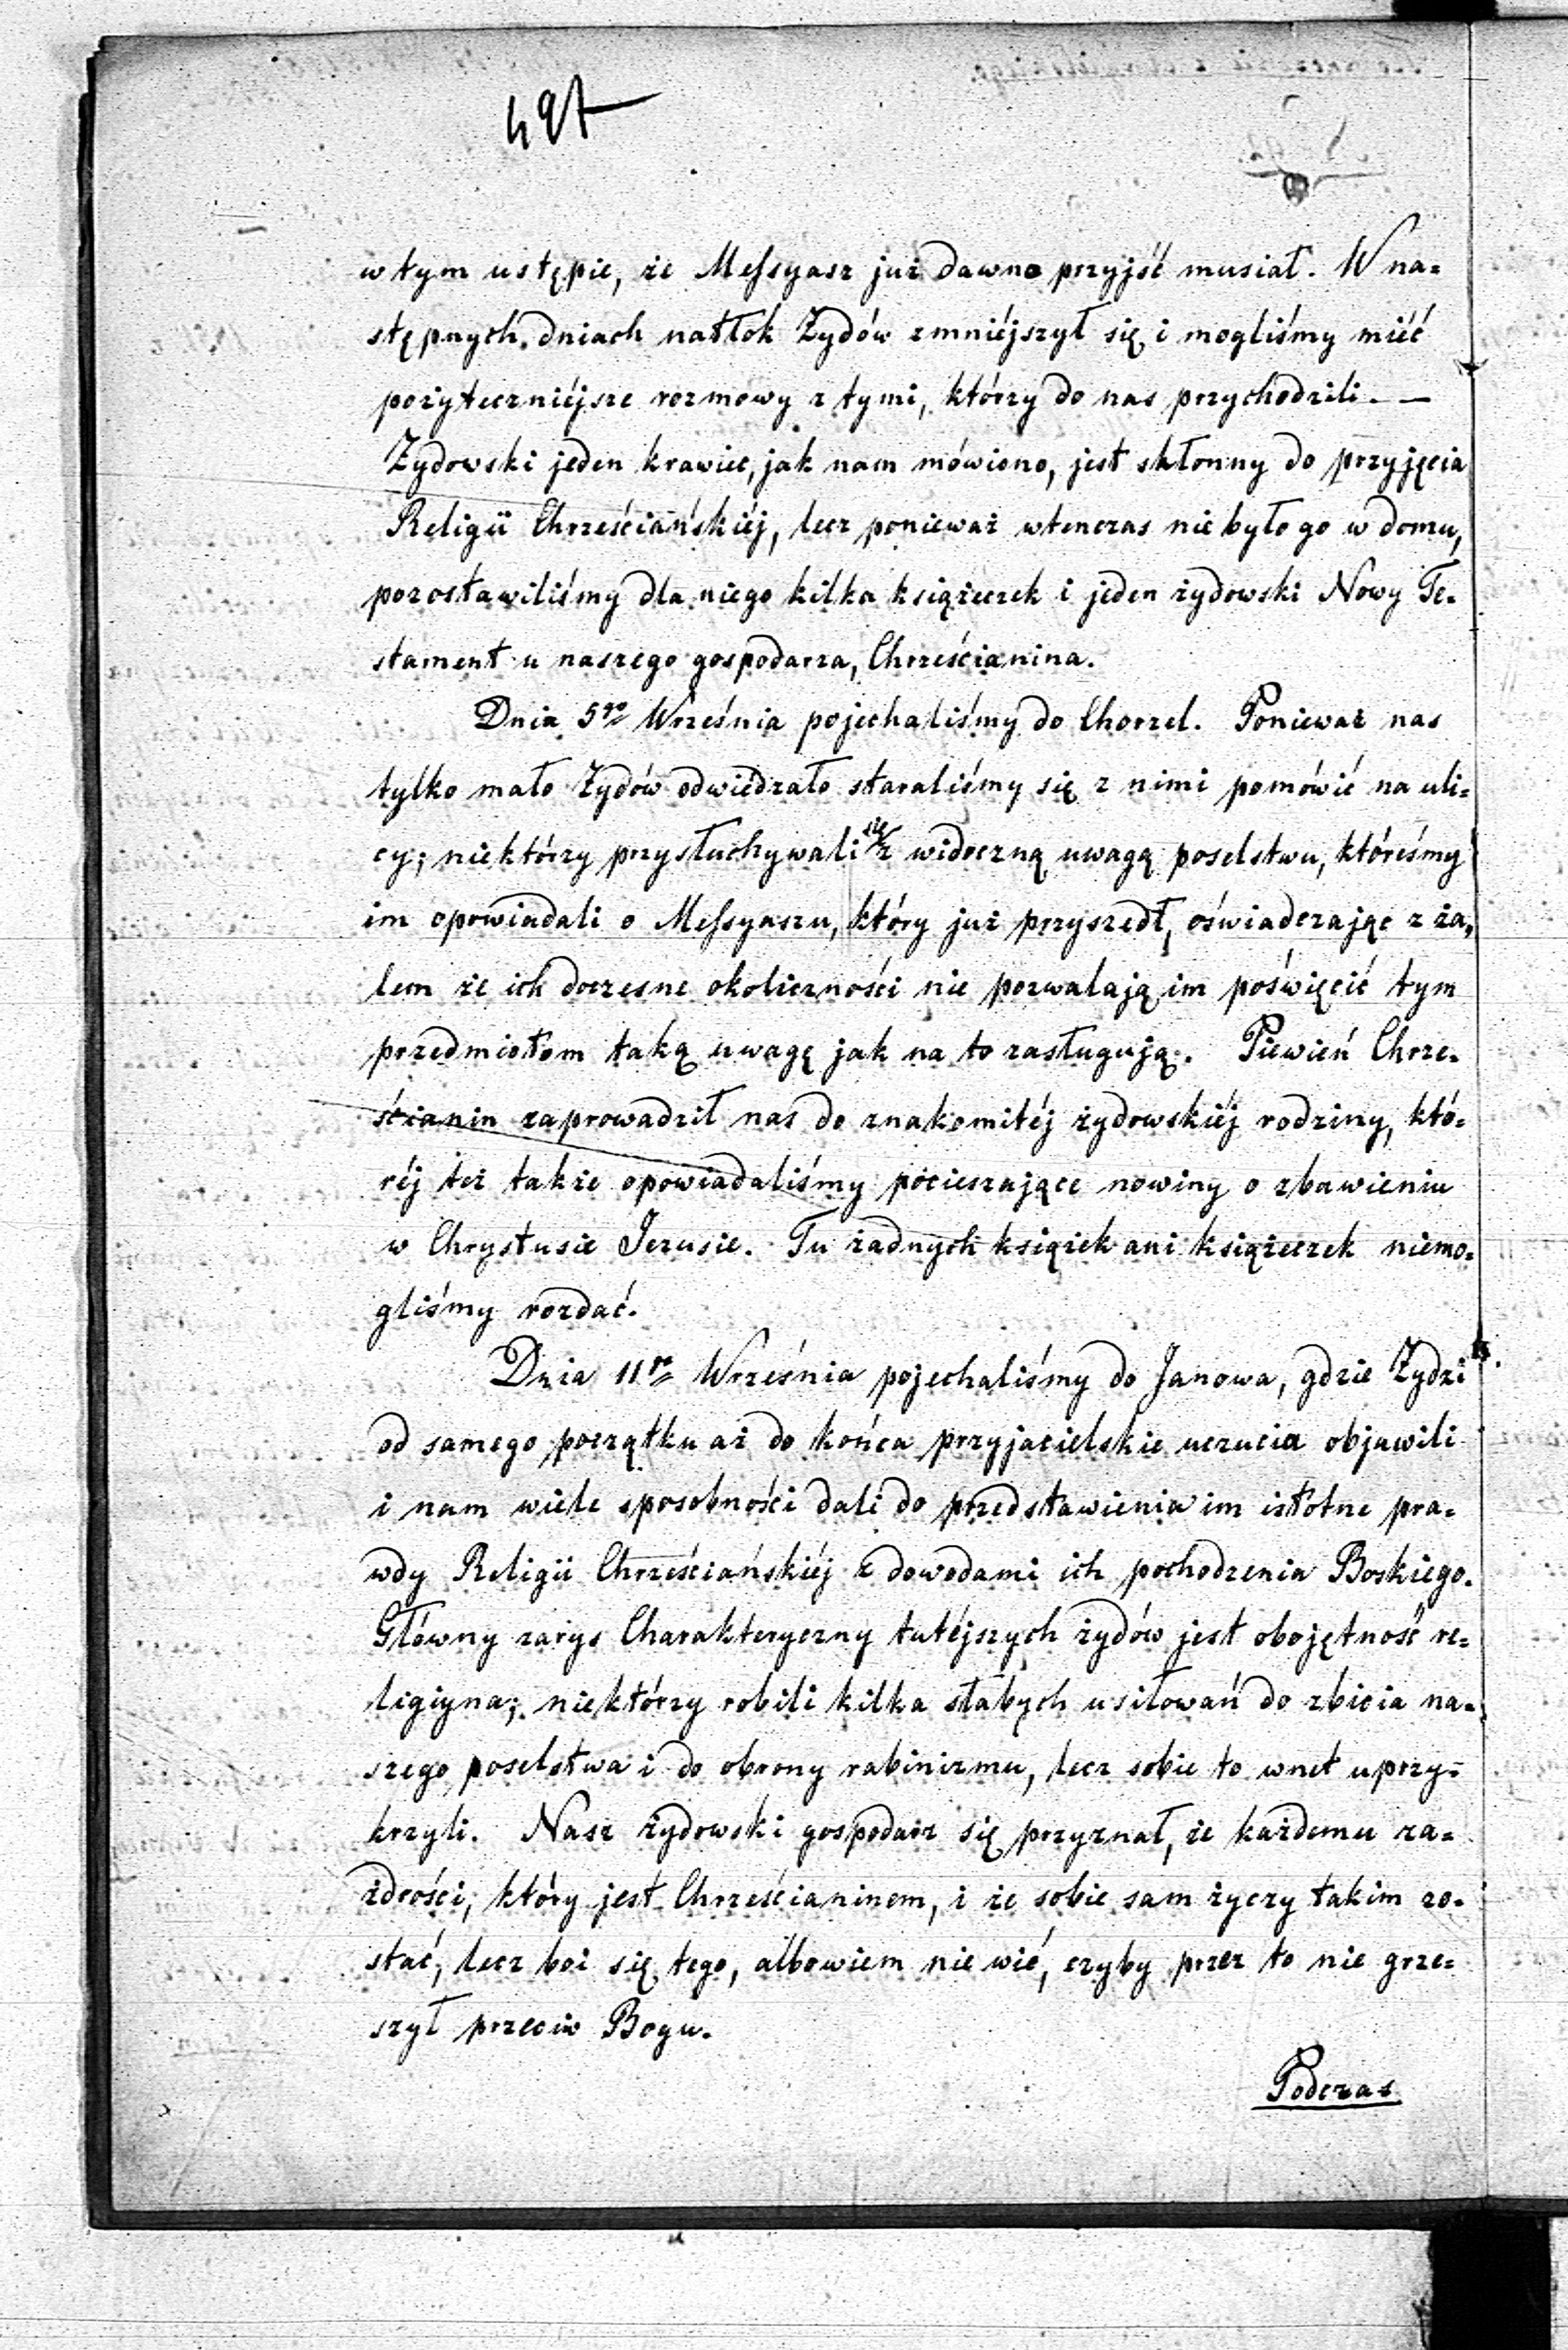 497
w tym ustępie, że Meſsyasz już dawno przyjść musiał. W na=
stępnych dniach natłok Żydów zmniéjszył się i mogliśmy miéć
pożyteczniéjsze rozmowy z tymi, którzy do nas przychodzili. —
Żydowski jeden krawiec, jak nam mówiono, jest skłonny do przyjęcia
Religii Chrześciańskiéj, lecz ponieważ wtenczas nie było go w domu,
pozostawiliśmy dla niego kilka książeczek i jeden żydowski Nowy Te=
stament u naszego gospodarza, Chrześcianina.
Dnia 5go Września pojechaliśmy do Chorzel. Ponieważ nas
tylko mało Żydów odwiédzało staraliśmy się z nimi pomówić na uli=
cy; niektórzy przysłuchywali się z widoczną uwagą poselstwu, któreśmy
im opowiadali o Meſsyaszu, który już przyszedł, oświadczając z ża=
lem że ich doczesne okoliczności nie pozwalają im poświęcić tym
przedmiotom taką uwagę jak na to zasługują. Piewień Chrze=
ścianin zaprowadził nas do znakomitéj żydowskiéj rodziny, któ=
réj też także opowiadaliśmy pocieszające nowiny o zbawieniu
w Chrystusie Jezusie. Tu żadnych książek ani książeczek niemo=
gliśmy rozdać.
Dnia 11go Września pojechaliśmy do Janowa, gdzie Żydzi
od samego początku aż do końca przyjacielskie uczucia objawili
i nam wiele sposobności dali do przedstawienia im istotne pra=
wdy Religii Chrześciańskiéj z dowodami ich pochodzenia Boskiego.
Główny zarys Charakteryczny tutéjszych żydów jest obojętność re=
ligiyna; niektórzy robili kilka słabych usiłowań do zbicia na=
szego poselstwa i do obrony rabinizmu, lecz sobie to wnet uprzy=
krzyli. Nasz żydowski gospodarz się przyznał, że każdemu za=
zdrości, który jest Chrześcianinem, i że sobie sam życzy takim zo=
stać, lecz boi się tego, albowiem nie wié, czyby przez to nie grze=
szył przeciw Bogu.
Podczas